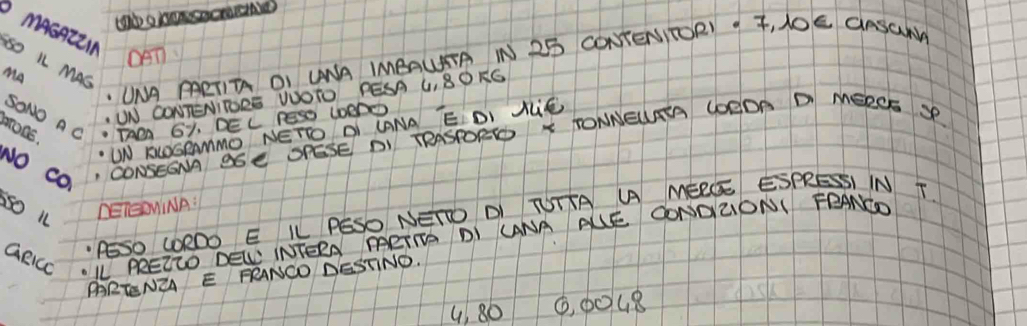 O MAGAZZIN
SSO IL MAG
MA
SONO A C
DATORE.
NO CO
SSO IL
CARICC
DATI:
• UNA PARTITA DI LANA IMBALLATA IN 25 CONTENITORI • 7,10€ CIASCUNA
• UN CONTENITORE VUOTO PESA 4,80 KG
• TARA 6% DEL PESO LORDO
• UN KILOGRAMMO NETTO DI LANA E DI 11€
• CONSEGNA 95€ SPESE DI TRASPORTO x TONNELLATA LORDA DI MERCE SP.
DETERMINA:
• PESO LORDO E IL PESO NETTO DI TUTTA LA MERCE ESPRESSI IN T.
• IL PREZZO DELL'INTERA PARTITA DI LANA ALLE CONDIZIONI FRANCO
PARTENZA E FRANCO DESTINO.
4,80 0,0048